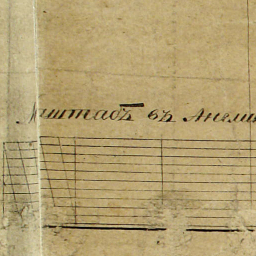 Маштабъ въ Англи